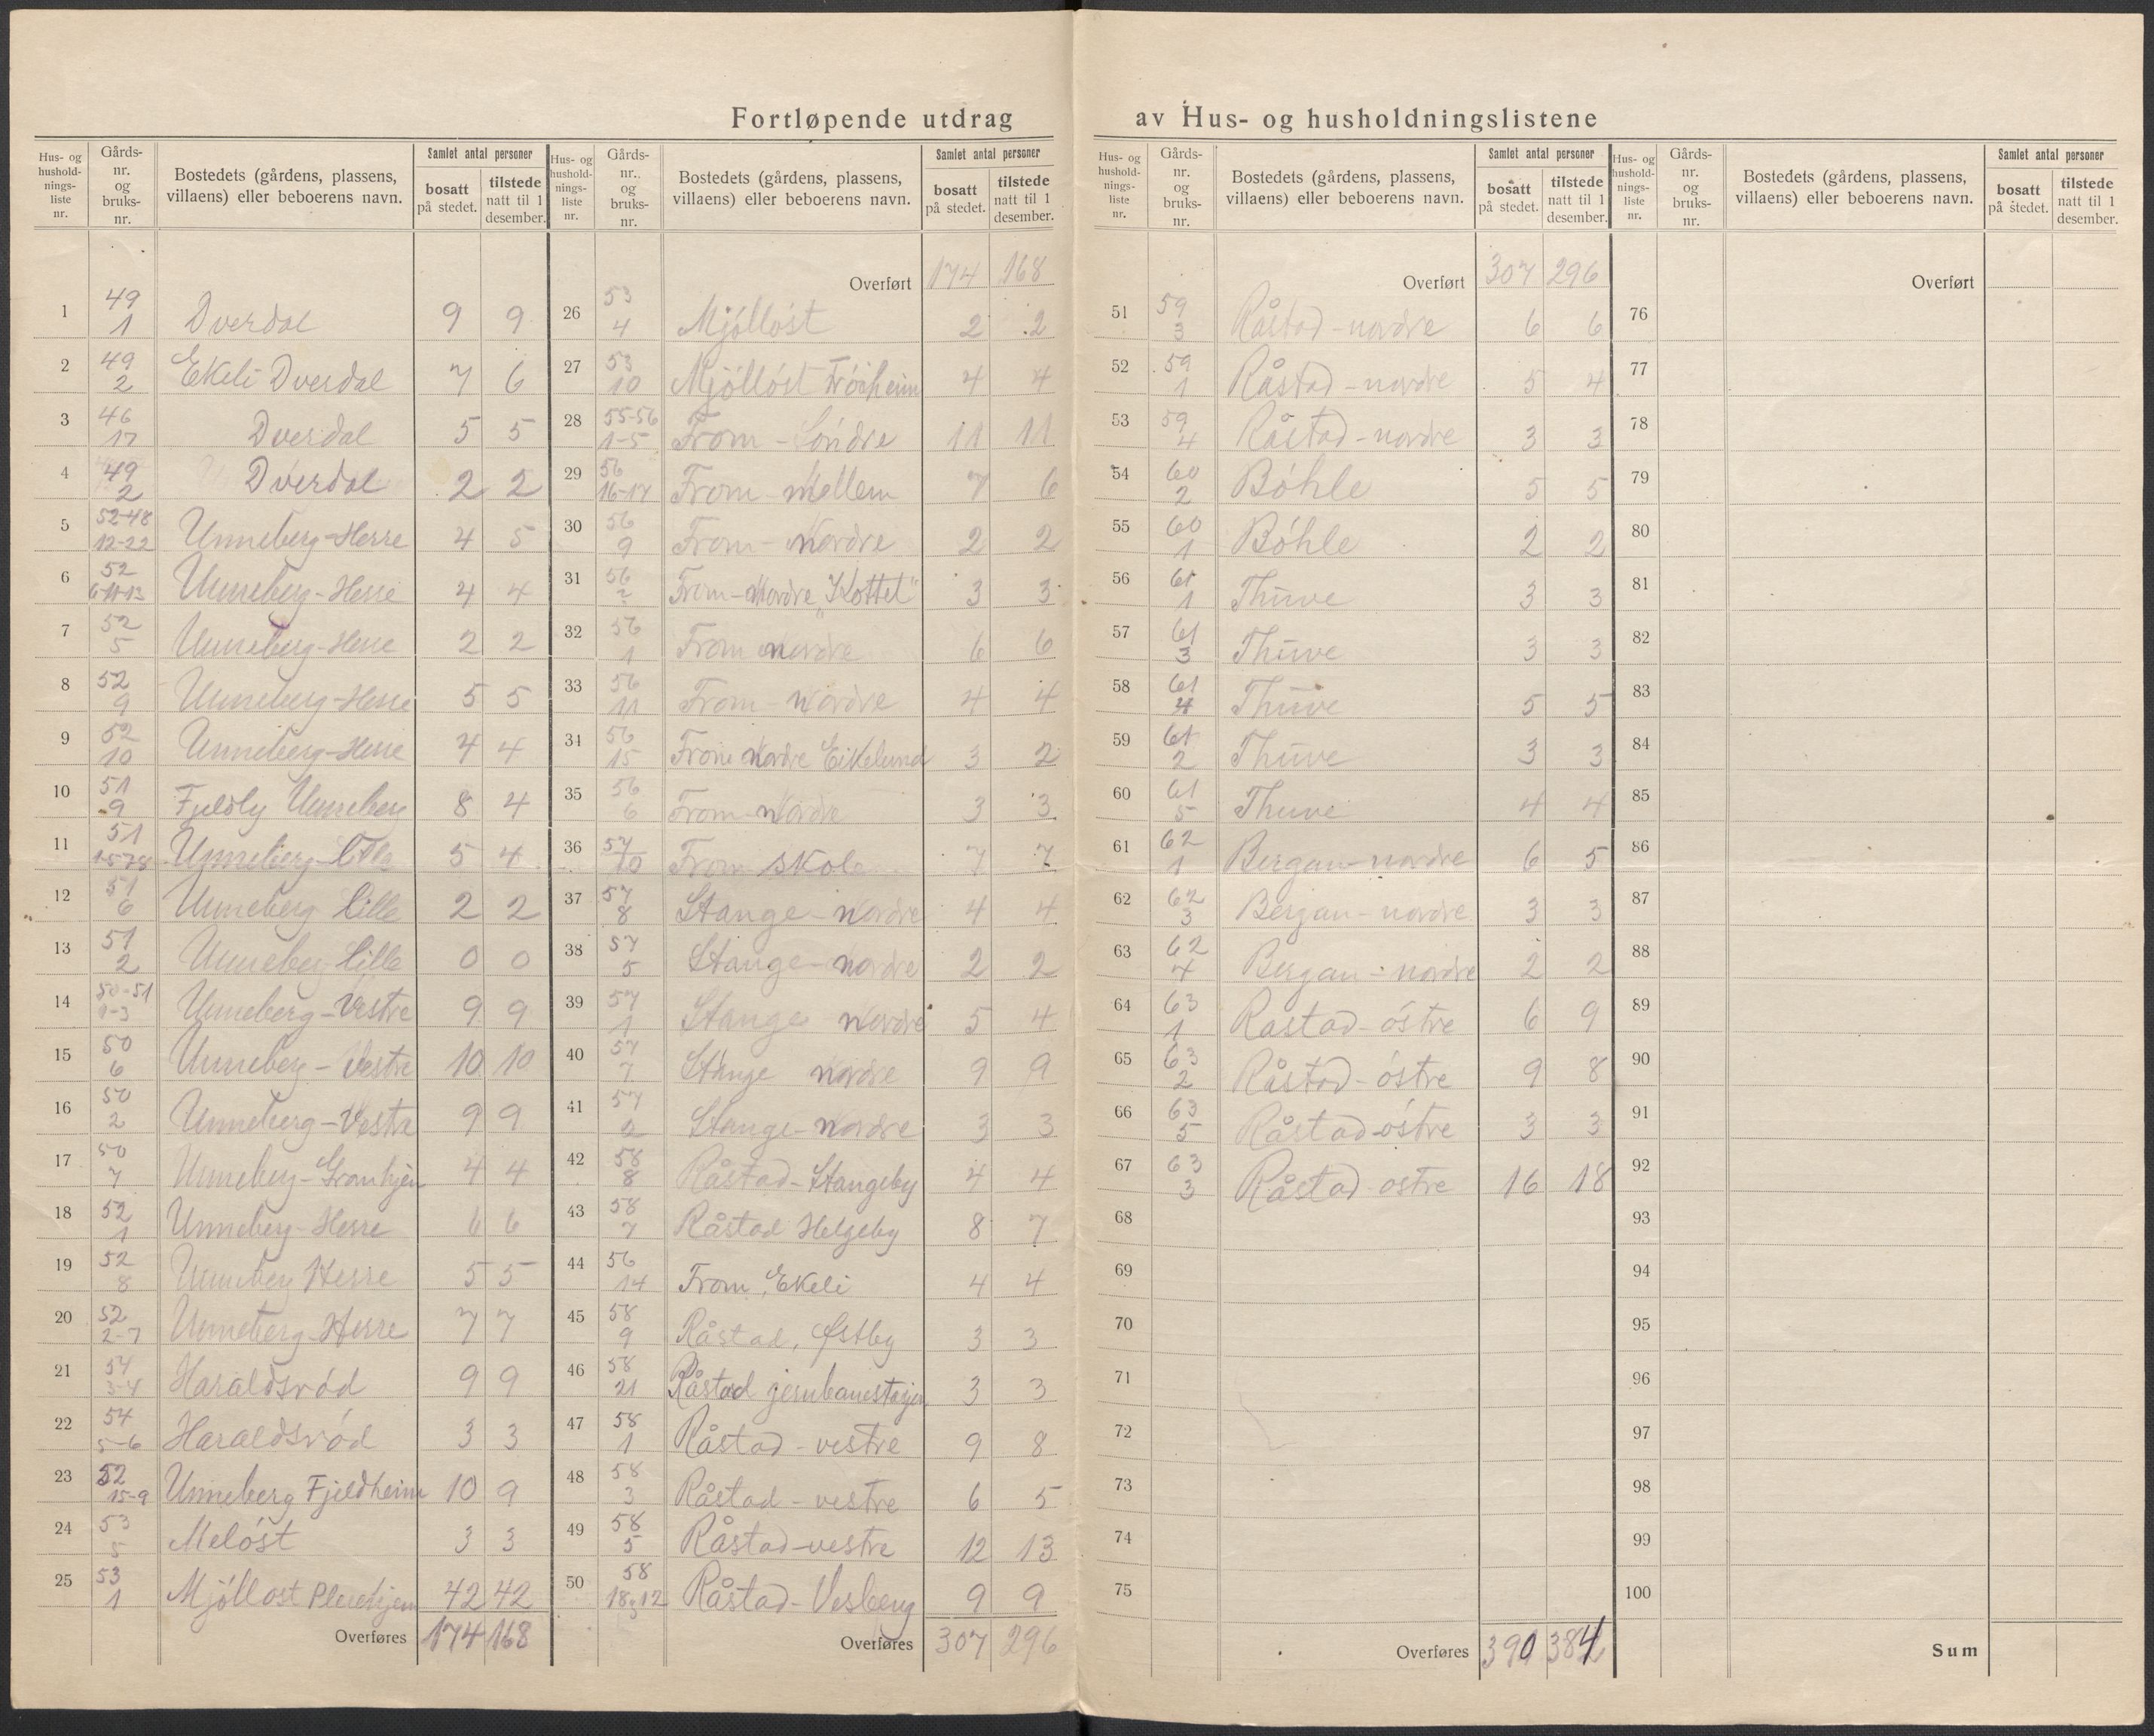 Fortløpende utdrag av Hus- og husholdningslistene
Hus- og hushold- nings- liste nr. Gårds- nr. og bruks- nr. Bostedets (gårdens, plassens, villaens) eller beboerens navn. Samlet antal personer bosatt på stedet. tilstede natt til 1 desember.
1 49 1 Dverdal 9 9
2 49 2 Ekeli Dverdal 7 6
3 46 17 Dverdal 5 5
4 49 2 Dverdal 2 2
5 52-48 12-22 Unneberg-Herre 4 5
6 52 Unneberg-Herre 4 4
7 52 5 Unneberg-Herre 2 2
8 52 9 Unneberg-Herre 5 5
9 52 10 Unneberg-Herre 4 4
10 51 9 Fjeldly Unneberg 8 4
11 51 Unneberg-Lille 5 4
12 51 6 Unneberg Lille 2 2
13 51 2 Unneberg Lille 0 0
14 50-51 1-3 Unneberg-Vestre 9 9
15 50 6 Unneberg-Vestre 10 10
16 50 2 Unneberg-Vestre 9 9
17 50 7 Unneberg-Granhjem 4 4
18 52 1 Unneberg-Herre 6 6
19 52 8 Unneberg Herre 5 5
20 52 2-7 Unneberg-Herre 7 7
21 54 3-4 Haraldsröd 9 9
22 54 5-6 Haraldsröd 3 3
23 52 15-9 Unneberg Fjeldheim 10 9
24 53 5 Melöst 3 3
25 53 1 Mjöllost Pleiehjem 42 42
Overføres 174 168
Hus- og hushold- nings- liste nr. Gårds- nr. og bruks- nr. Bostedets (gårdens, plassens, villaens) eller beboerens navn. Samlet antal personer bosatt på stedet. tilstede natt til 1 desember.
Overført 174 168
26 53 4 Mjöllöst 2 2
27 53 10 Mjöllöst Fröiheim 4 4
28 55-56 1-5 From-Söndre 11 11
29 56 16-17 From-Mellem 7 6
30 56 9 From-Nordre 2 2
31 56 2 From-Nordre "Kottet" 3 3
32 56 1 From Nordre 6 6
33 56 11 From-Nordre 4 4
34 56 15 From Nordre Eikelund 3 2
35 56 6 From-Nordre 3 3
36 57 10 From skole 7 7
37 57 8 Stange-Nordre 4 4
38 57 5 Stange-Nordre 2 2
39 57 1 Stange Nordre 5 4
40 57 7 Stange Nordre 9 9
41 57 2 Stange-Nordre 3 3
42 58 8 Råstad-Stangeby 4 4
43 58 7 Råstad Helgeby 8 7
44 56 14 From, Ekeli 4 4
45 58 9 Råstad, Østby 3 3
46 58 21 Råstad jernbanestasjon 3 3
47 58 1 Råstad-vestre 9 8
48 58 3 Råstad-vestre 6 5
49 58 5 Råstad-vestre 12 13
50 58 Råstad-Vesberg 9 9
Overføres 307 296
Hus- og hushold- nings- liste nr. Gårds- nr. og bruks- nr. Bostedets (gårdens, plassens, villaens) eller beboerens navn. Samlet antal personer bosatt på stedet. tilstede natt til 1 desember.
Overført 307 296
51 59 3 Råstad-nordre 6 6
52 59 1 Råstad-nordre 5 4
53 59 4 Råstad-nordre 3 3
54 60 2 Böhle 5 5
55 60 1 Böhle 2 2
56 61 1 Thuve 3 3
57 61 3 Thuve 3 3
58 61 4 Thuve 5 5
59 61 2 Thuve 3 3
60 61 5 Thuve 4 4
61 62 1 Bergan-nordre 6 5
62 62 3 Bergan-nordre 3 3
63 62 4 Bergan-nordre 2 2
64 63 1 Rastad-östre 6 9
65 63 2 Råstad-östre 9 8
66 63 5 Råstad-östre 3 3
67 63 3 Råstad-ostre 16 18
68
69
70
71
72
73
74
75
Overføres 390 384
Hus- og hushold- nings- liste nr. Gårds- nr. og bruks- nr. Bostedets (gårdens, plassens, villaens) eller beboerens navn. Samlet antal personer bosatt på stedet. tilstede natt til 1 desember.
Overført
76
77
78
79
80
81
82
83
84
85
86
87
88
89
90
91
92
93
94
95
96
97
98
99
100
Sum